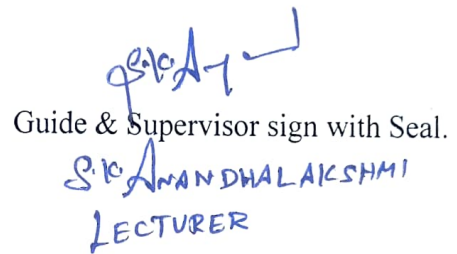 Guide & Supervisor sign with Seal.
S.K. ANANDHALAKSHMI
LECTURER